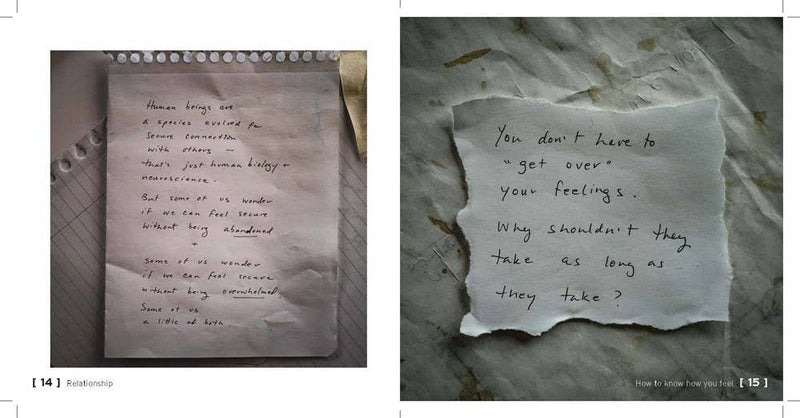 Human beings are
a species evolved for
secure connection
with others —
that's just human biology +
neuroscience.
But some of us wonder
if we can feel secure
without being abandoned
+
some of us wonder
if we can feel secure
without being overwhelmed.
Some of us
a little of both
[ 14 ] Relationship
You don't have to
"get over"
your feelings.
Why shouldn't they
take as long as
they take?
How to know how you feel [ 15 ]